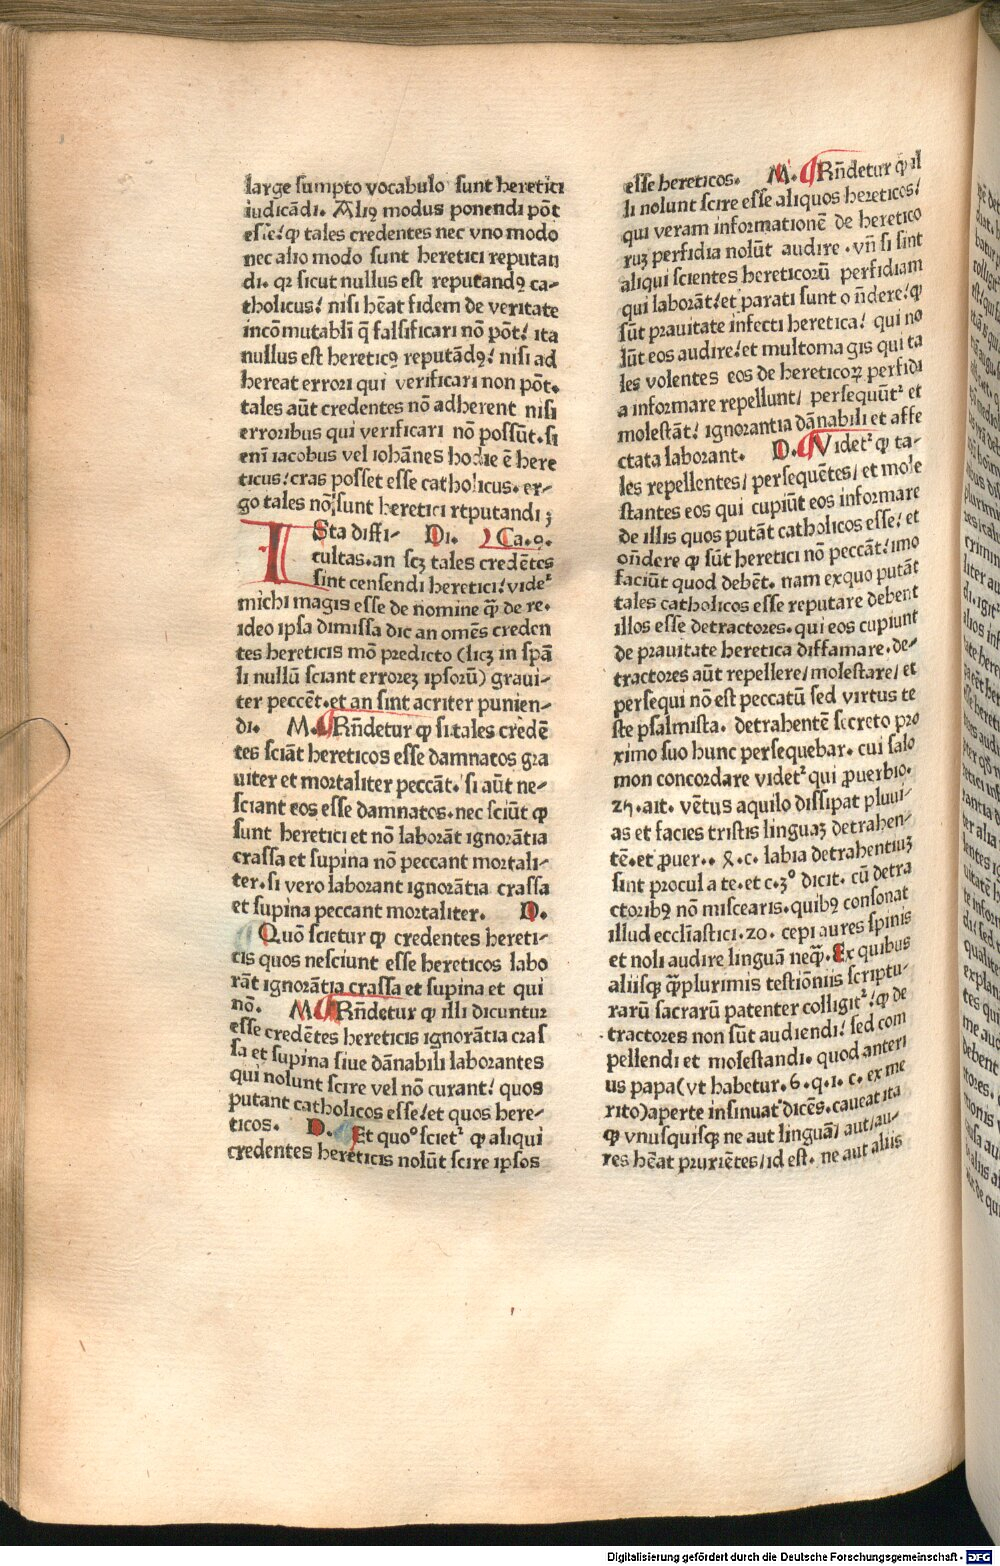 large sumpto vocabulo sunt heretici
iudicādi. Aliꝰ modus ponendi pōt
esse: ꝙ tales credentes nec vno modo
nec alio modo sunt heretici reputan
di. qꝛ sicut nullus est reputandꝰ ca-
tholicus: nisi hēat fidem de veritate
incōmutabli q̄ falsificari nō pōt: ita
nullus est hereticꝰ reputādꝰ: nisi ad
hereat errori qui verificari non pōt.
tales aūt credentes nō adherent nisi
erroribus qui verificari nō possūt. si
enī iacobus vel iohānes hodie ē here
ticus: cras posset esse catholicus. er-
go tales nō sunt heretici reputandi ;
ISta diffi- Di. Ca. 9.
cultas. an scꝫ tales credētes
sint censendi heretici: videtᷣ
michi magis esse de nomine ꝙ̄ de re.
ideo ipsa dimissa dic an omēs creden
tes hereticis mō predicto (licꝫ in spā
li nullū sciant erroreꝫ ipsorū) graui-
ter peccēt. et an sint acriter punien-
di. M. Rn̄detur ꝙ si tales credē
tes sciāt hereticos esse damnatos gra
uiter et mortaliter peccāt. si aūt ne-
sciant eos esse damnatos. nec sciūt ꝙ
sunt heretici et nō laborāt ignorātia
crassa et supina nō peccant mortali-
ter. si vero laborant ignorātia crassa
et supina peccant mortaliter. D.
Quō scietur ꝙ credentes hereti-
cis quos nesciunt esse hereticos labo
rāt ignorātia crassa et supina et qui
nō. M. Rn̄detur ꝙ illi dicuntur
esse credētes hereticis ignorātia cras
sa et supina siue dānabili laborantes
qui nolunt scire vel nō curant: quos
putant catholicos esse: et quos here-
ticos. D. Et quoº scietᷣ ꝙ aliqui
credentes hereticis nolūt scire ipsos
esse hereticos. M. Rn̄detur ꝙ il
li nolunt scire esse aliquos hereticos:
qui veram informationē de heretico
ruꝫ perfidia nolūt audire. vn̄ si sint
aliqui scientes hereticorū perfidiam
qui laborāt: et parati sunt on̄dere: ꝙ
sūt prauitate infecti heretica: qui no
lūt eos audire: et multoma gis qui ta
les volentes eos de hereticoꝝ perfidi
a informare repellunt/ persequūtᷣ et
molestāt: ignorantia dānabili et affe
ctata laborant. D. Videtᷣ ꝙ ta-
les repellentes/ persequētes/ et mole
stantes eos qui cupiūt eos informare
de illis quos putāt catholicos esse: et
on̄dere ꝙ sūt heretici nō peccāt: imo
faciūt quod debēt. nam exquo putāt
tales catholicos esse reputare debent
illos esse detractores. qui eos cupiunt
de prauitate heretica diffamare. de-
tractores aūt repellere/ molestare/ et
persequi nō est peccatū sed virtus te
ste psalmista. detrahentē secreto pro
ximo suo hunc persequebar. cui salo
mon concordare videtᷣ qui ꝓuerbio.
25. ait. vētus aquilo dissipat pluui-
as et facies tristis linguaꝫ detrahen-
tē. et ꝓuer.. 4. c. labia detrahentiuꝫ
sint procul a te. et c. 3º dicit. cū detra
ctoribꝰ nō miscearis. quibꝰ consonat
illud eccl̄iastici. 20. cepi aures spinis
et noli audire linguā neqᷓ. Ex quibus
aliisqꝫ ꝙ̄plurimis testiōniis scriptu-
rarū sacrarū patenter colligitᷣ: ꝙ de
tractores non sūt audiendi: sed com
pellendi et molestandi. quod anteri
us papa (vt habetur. 6. q. 1. c. ex me
rito) aperte insinuat dicēs. caueat ita
ꝙ vnusquisqꝫ ne aut linguā/ aut/ au-
res hēat prurientes/ id est. ne aut aliis